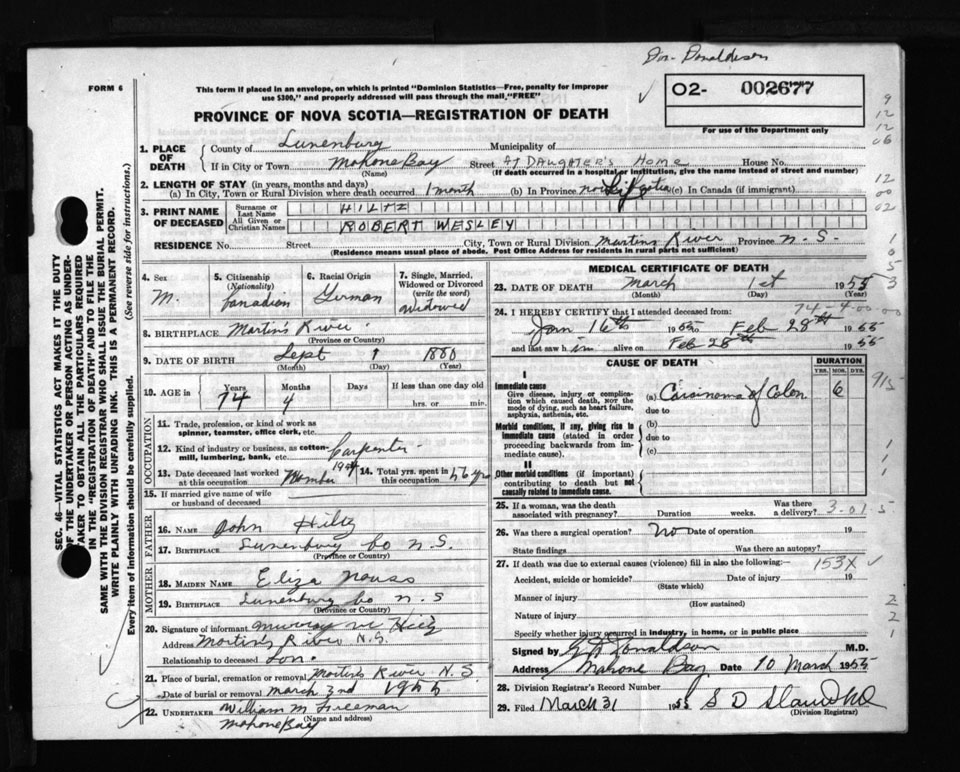 Dr. Donaldson
FORM 6
This form if placed in an envelope, on which is printed "Dominion Statistics—Free, penalty for improper
use $300," and properly addressed will pass through the mail "FREE"
O2- 002677
For use of the Department only
PROVINCE OF NOVA SCOTIA—REGISTRATION OF DEATH
1. PLACE OF DEATH
County of Lunenburg Municipality of
If in City or Town Mahone Bay Street At Daughter's Home House No
(Name) (If death occurred in a hospital or institution, give the name instead of street and number)
2. LENGTH OF STAY (in years, months and days)
(a) In City, Town or Rural Division where death occurred 1 month (b) In Province Life (c) In Canada (if immigrant)
3. PRINT NAME OF DECEASED
Surname or Last Name HILTZ
All Given or Christian Names ROBERT WESLEY
RESIDENCE No. Street City, Town or Rural Division Martins River Province N.S.
(Residence means usual place of abode. Post Office Address for residents in rural parts not sufficient)
4. Sex M.
5. Citizenship (Nationality) Canadian
6. Racial Origin German
7. Single, Married, Widowed or Divorced (write the word) Widowed
8. BIRTHPLACE Martin's River
(Province or Country)
9. DATE OF BIRTH Sept 1 1880
(Month) (Day) (Year)
10. AGE in Years 74 Months 4 Days If less than one day old hrs. or min.
OCCUPATION
11. Trade, profession, or kind of work as spinner, teamster, office clerk, etc.
12. Kind of industry or business, as cotton-mill, lumbering, bank, etc. Carpenter
13. Date deceased last worked at this occupation
14. Total yrs. spent in this occupation 56 yrs
15. If married give name of wife or husband of deceased
FATHER
16. NAME John Hiltz
17. BIRTHPLACE Lunenburg Co N.S.
(Province or Country)
MOTHER
18. MAIDEN NAME Eliza
19. BIRTHPLACE Lunenburg Co N S
(Province or Country)
20. Signature of informant Murray
Address Martin's River N.S.
Relationship to deceased Son.
21. Place of burial, cremation or removal Martin's River N.S.
Date of burial or removal March 3rd 1955
22. UNDERTAKER William M Freeman
(Name and address)
Mahone Bay
MEDICAL CERTIFICATE OF DEATH
23. DATE OF DEATH March 1st 1955
(Month) (Day) (Year)
74-4-00-00
24. I HEREBY CERTIFY that I attended deceased from:
Jan 16th 1955 to Feb 28th 1955
and last saw him alive on Feb 28th 1955
CAUSE OF DEATH
DURATION
YRS. MOS. DYS.
I
Immediate cause
Give disease, injury or complication which caused death, NOT the mode of dying, such as heart failure, asphyxia, asthenia, etc.
(a) Carsinoma of Colon 6
due to
Morbid conditions, if any, giving rise to immediate cause (stated in order proceeding backwards from immediate cause).
(b)
due to
(c)
II
Other morbid conditions (if important) contributing to death but not causally related to immediate cause.
25. If a woman, was the death associated with pregnancy? Duration weeks. Was there a delivery? 3-01
26. Was there a surgical operation? No Date of operation 19
State findings Was there an autopsy?
27. If death was due to external causes (violence) fill in also the following:— 153X
Accident, suicide or homicide? Date of injury 19
(State which)
Manner of injury
(How sustained)
Nature of injury
Specify whether injury occurred in industry, in home, or in public place
Signed by Donaldson M.D.
Address Mahone Bay Date 10 March 1955
28. Division Registrar's Record Number
29. Filed March 31 1955 S D
(Division Registrar)
SEC. 46—VITAL STATISTICS ACT MAKES IT THE DUTY
OF THE UNDERTAKER OR PERSON ACTING AS UNDERTAKER TO OBTAIN ALL THE PARTICULARS REQUIRED
IN THE "REGISTRATION OF DEATH" AND TO FILE THE
SAME WITH THE DIVISION REGISTRAR WHO SHALL ISSUE THE BURIAL PERMIT.
WRITE PLAINLY WITH UNFADING INK. THIS IS A PERMANENT RECORD.
Every item of information should be carefully supplied. (See reverse side for instructions.)
9
12
12
06
12
00
02
1
0
5
3
1
1
1
5
2
2
1